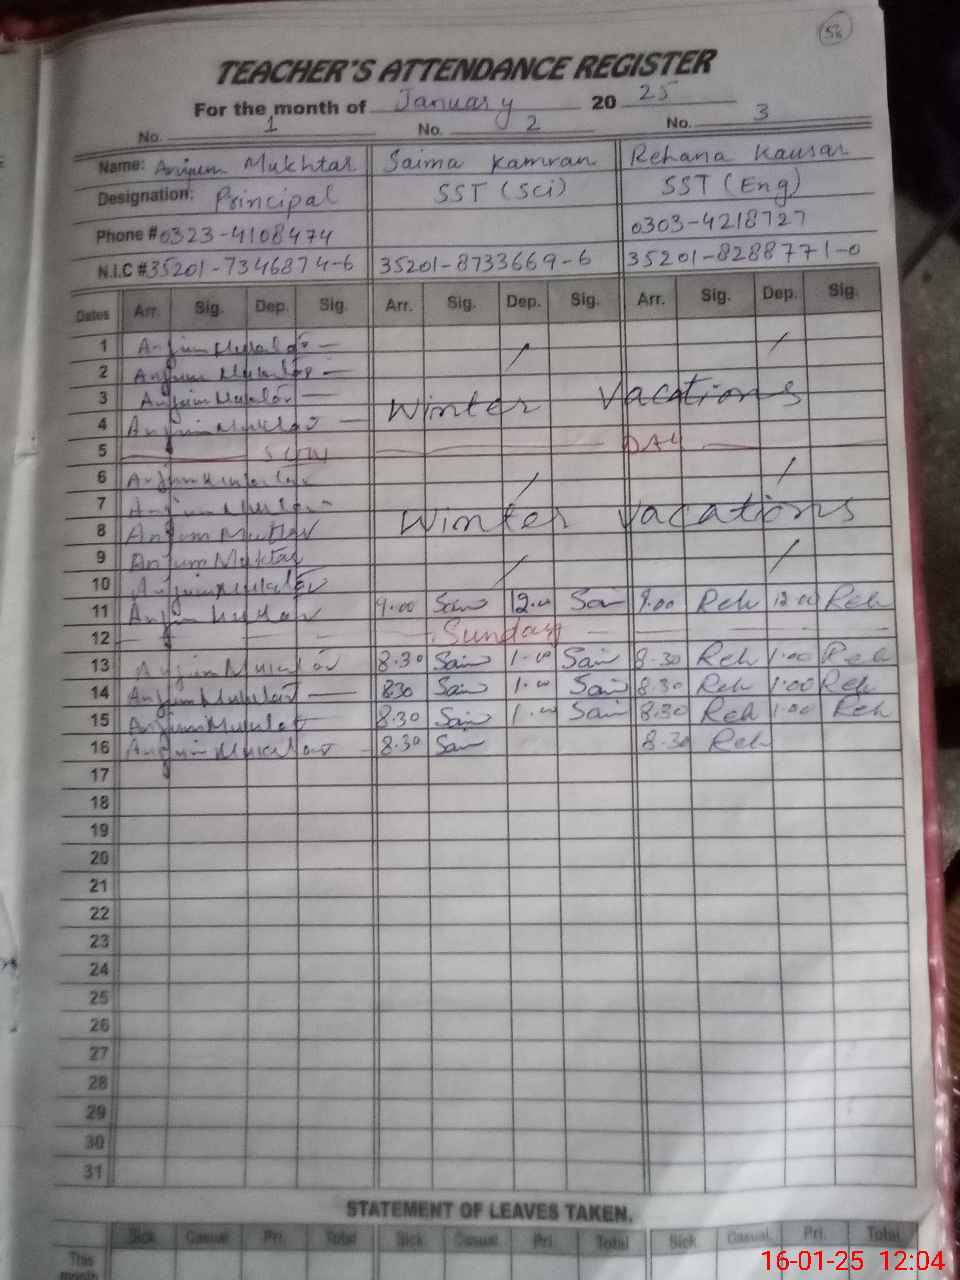 58
TEACHER'S ATTENDANCE REGISTER
For the month of January 20 25
No. 1 No. 2 No. 3
Name: Anjum Mukhtar Saima Kamran Rehana Kausar
Designation: Principal SST (Sci) SST (Eng)
Phone # 0323-4108474 0303-4218727
N.I.C # 35201-7346874-6 35201-8733669-6 35201-8288771-0
Dates Arr. Sig. Dep. Sig. Arr. Sig. Dep. Sig. Arr. Sig. Dep. Sig.
1
2
3 Winter Vacations
4
5 SUN DAY
6
7
8 Anjum Mukhtar Winter Vacations
9 Anjum Mukhtar
10
11 9.00 Sai 12.00 Sai 9.00 Reh 12.00 Reh
12 Sunday
13 8.30 Sai 1.00 Sai 8.30 Reh 1.00 Reh
14 830 Sai 1.00 Sai 8.30 Reh 1.00 Reh
15 8.30 Sai 1.00 Sai 8.30 Reh 1.00 Reh
16 8.30 Sai 8.30 Reh
17
18
19
20
21
22
23
24
25
26
27
28
29
30
31
STATEMENT OF LEAVES TAKEN.
Sick Casual Pri. Total Sick Casual Pri. Total Sick Casual Pri. Total
This month
16-01-25 12:04